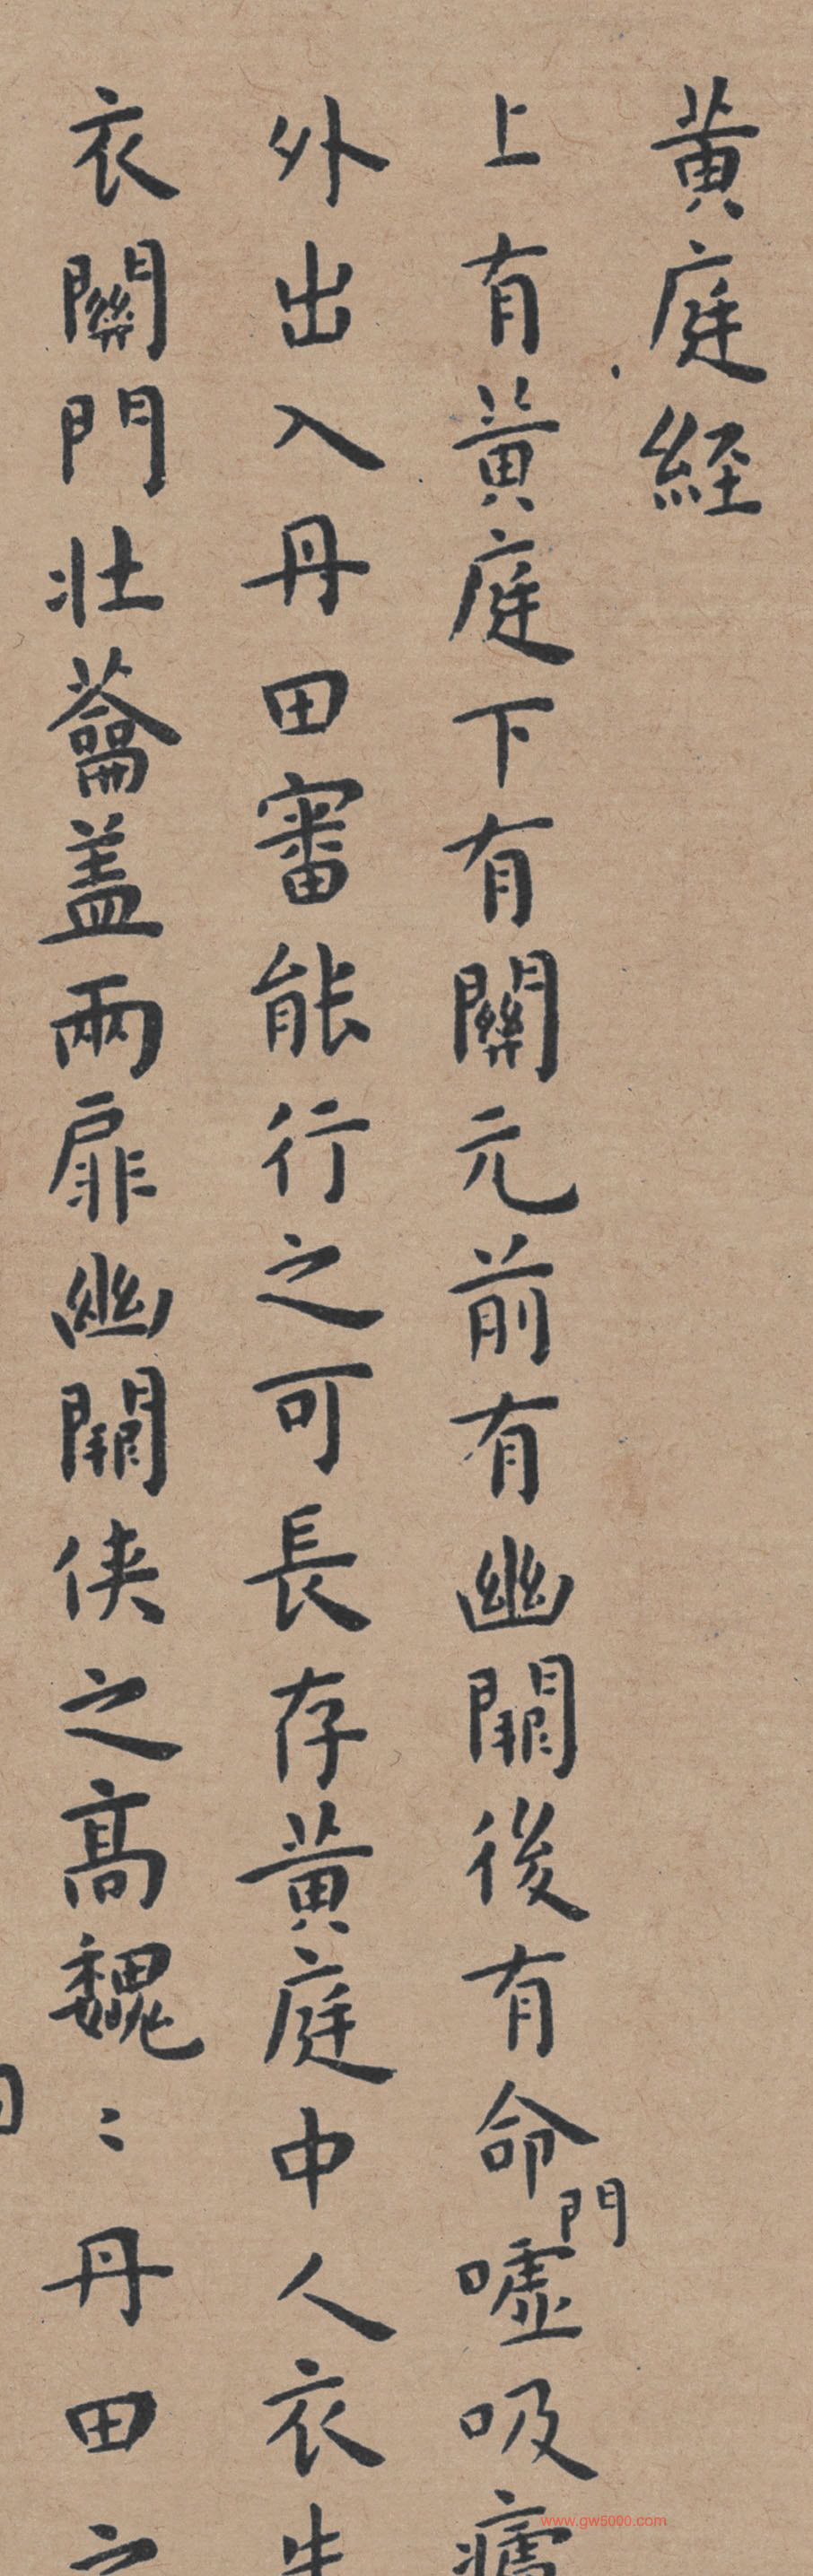 黄庭經
上有黄庭下有關元前有幽闕後有命門噓吸廬
外出入丹田審能行之可長存黄庭中人衣朱
衣關門壯蘥盖兩扉幽闕俠之高魏〻丹田之
www.gw5000.com